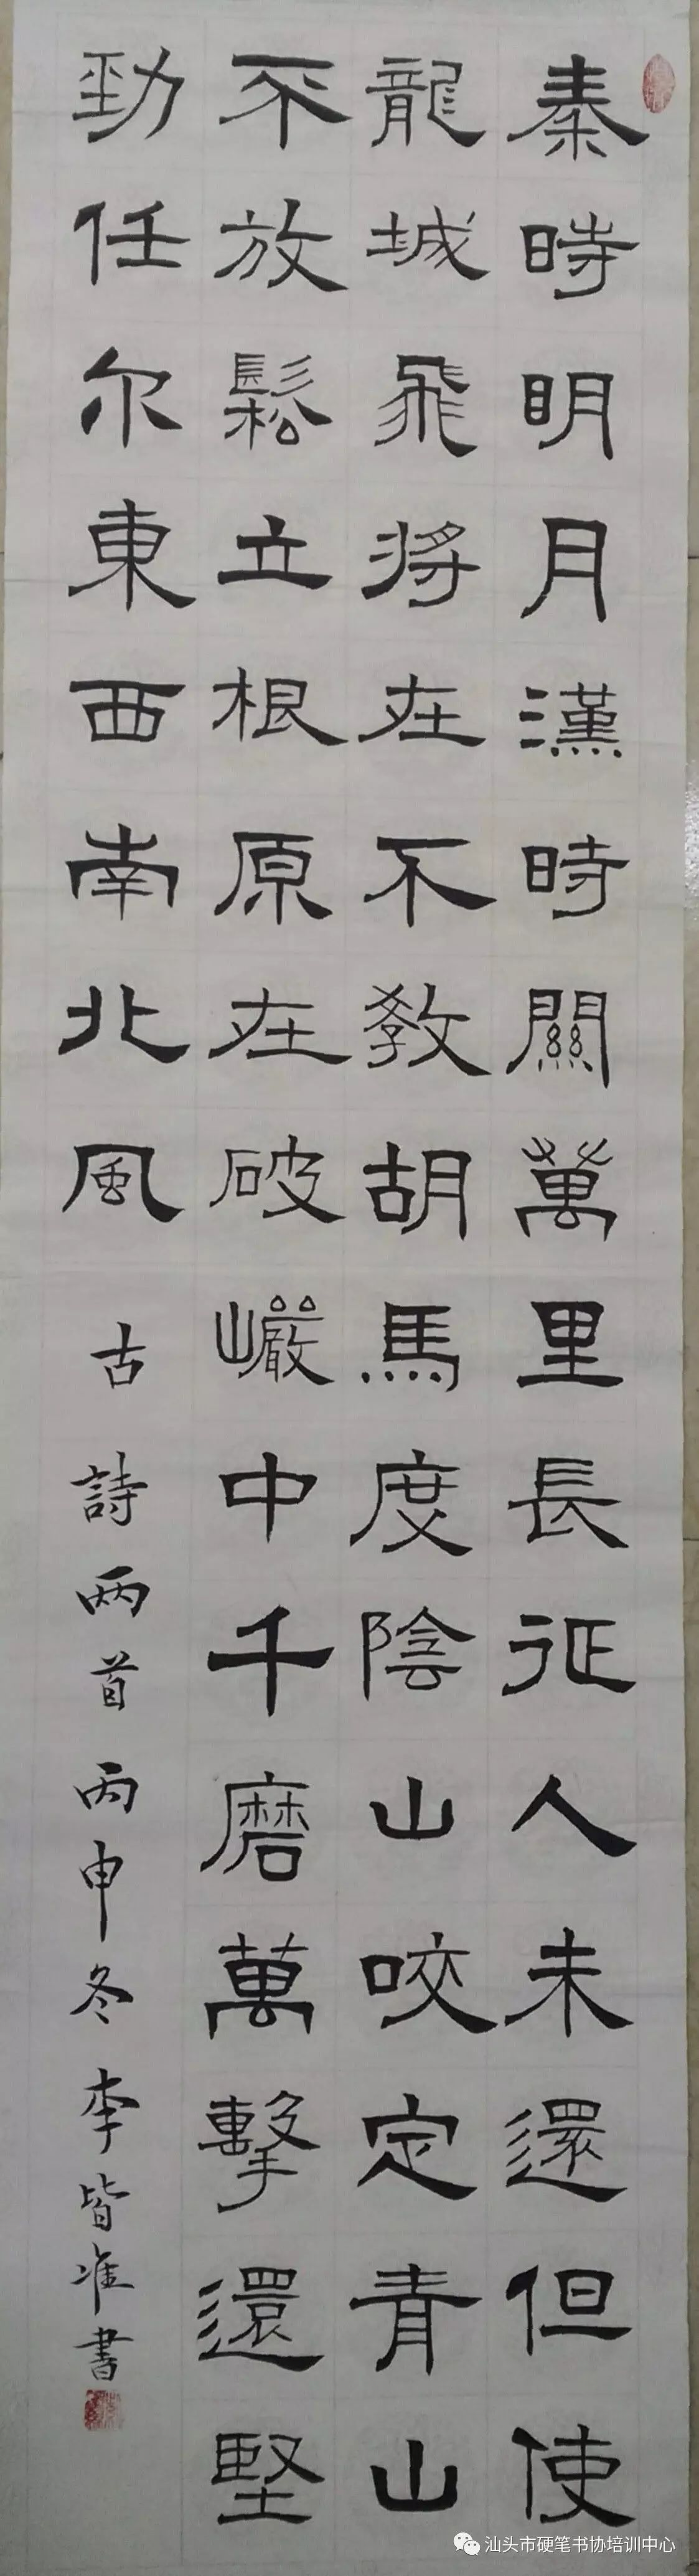 秦時明月漢時關萬里長征人未還但使
龍城飛將在不教胡馬度陰山咬定青山
不放鬆立根原在破巖中千磨萬擊還堅
勁任尔東西南北風 古詩兩首 丙申冬 李皆准書
汕头市硬笔书协培训中心